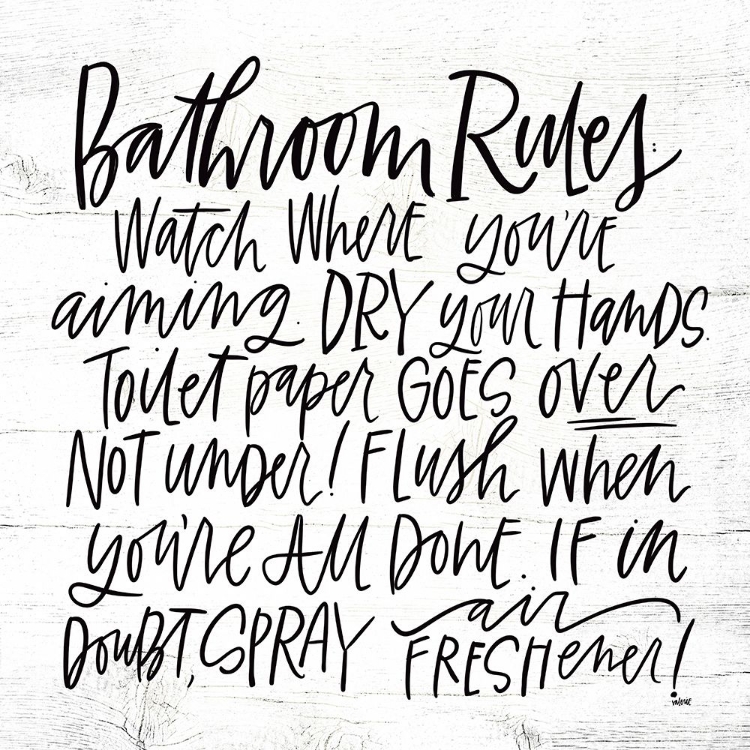 Bathroom Rules:
Watch Where you're
aiming. DRY your Hands.
Toilet paper GOES over
Not under! Flush when
you're All Done. IF in
Doubt, SPRAY air
FRESHener!